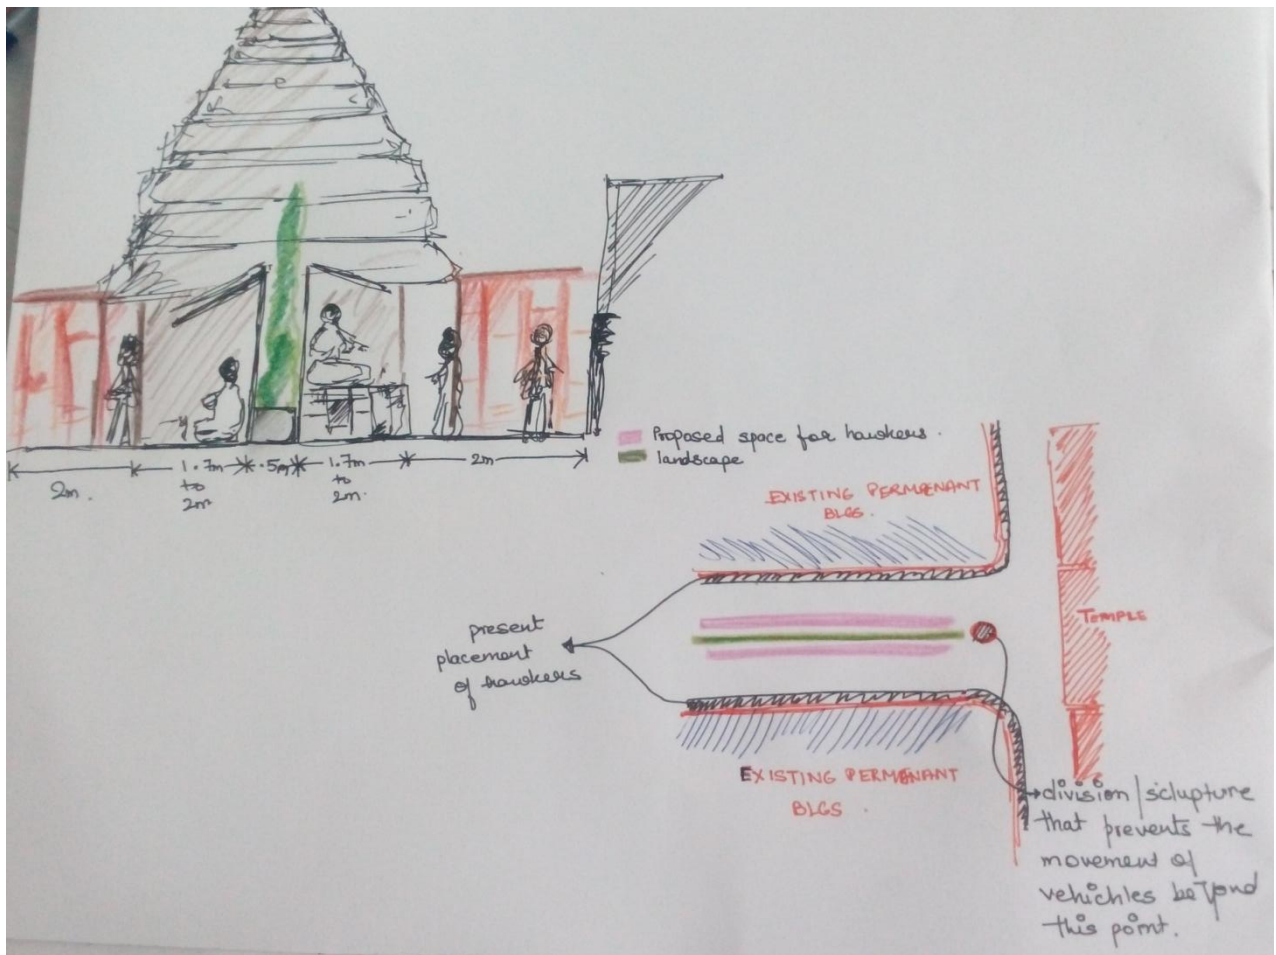 2m.
1.7m
to
2m
.5m
1.7m
to
2m.
2m
Proposed space for hawkers.
landscape
EXISTING PERMAENANT
BLGS.
present
placement
of hawkers
TEMPLE
EXISTING PERMENANT
BLGS.
division/sclupture
that prevents the
movement of
vehichles beyond
this point.